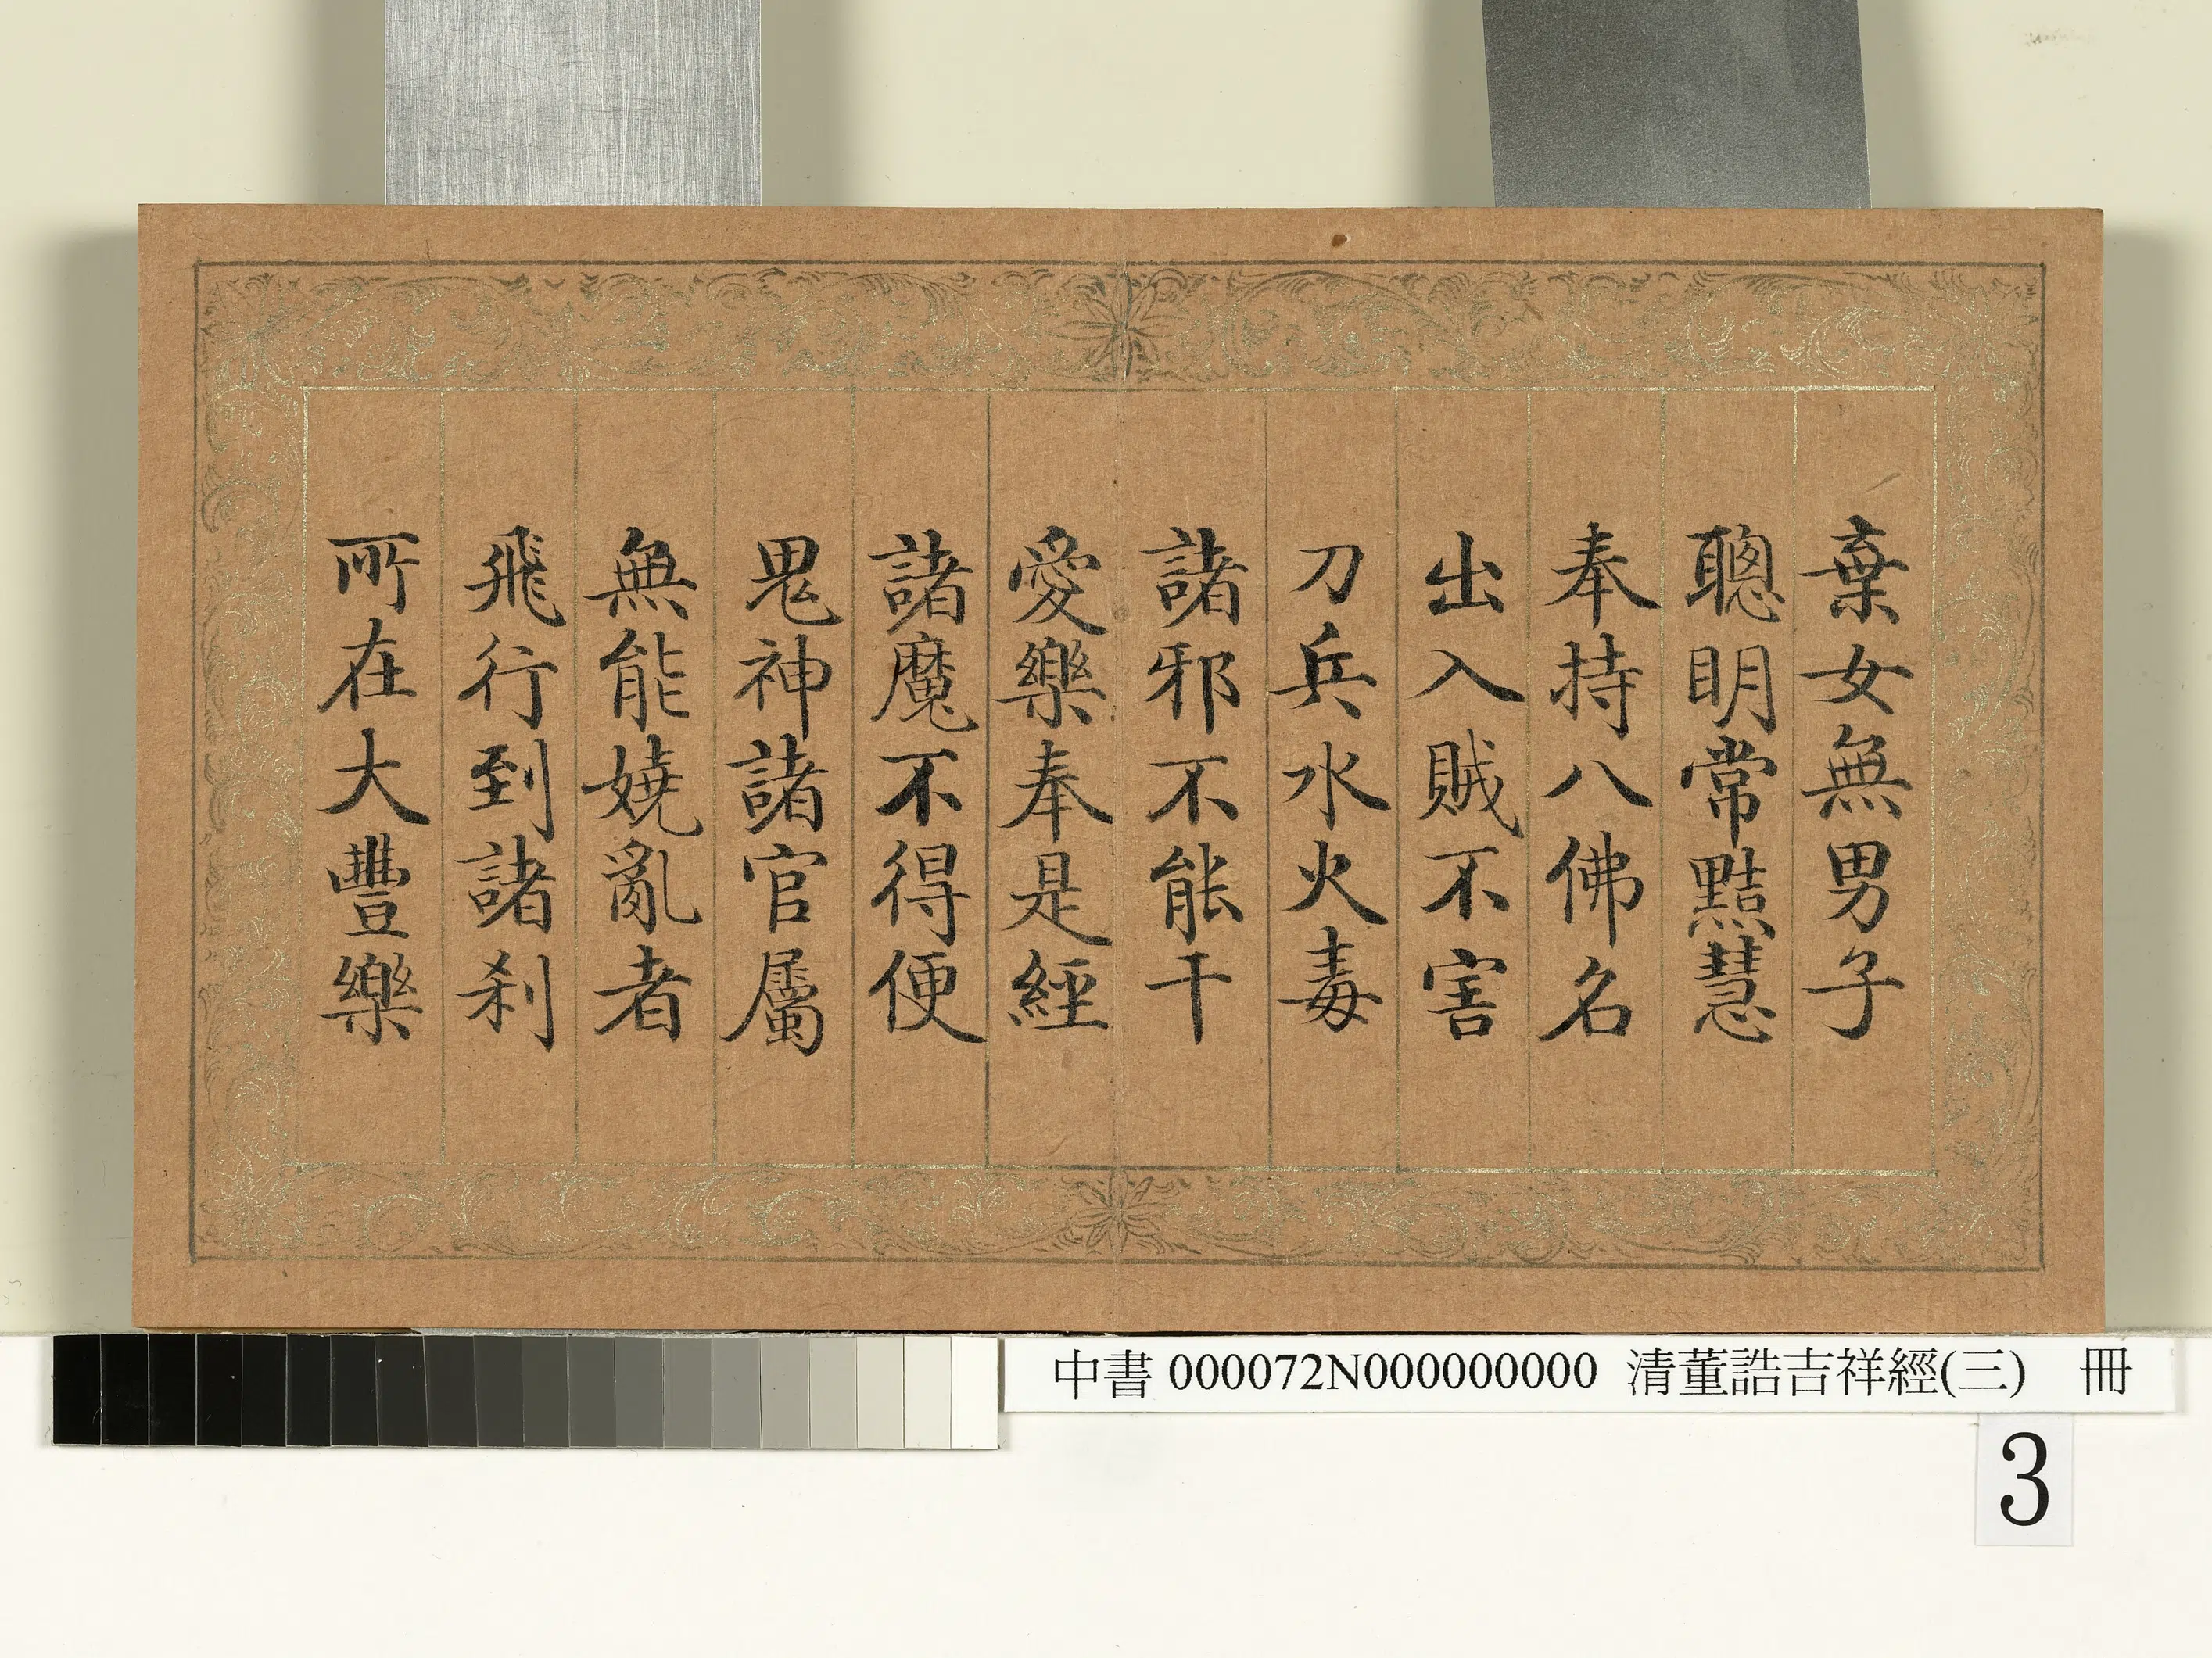 棄女無男子
聰明常黠慧
奉持八佛名
出入賊不害
刀兵水火毒
諸邪不能干
愛樂奉是經
諸魔不得便
鬼神諸官屬
無能嬈亂者
飛行到諸刹
所在大豐樂
中書 000072N000000000 清董誥吉祥經(三) 冊
3